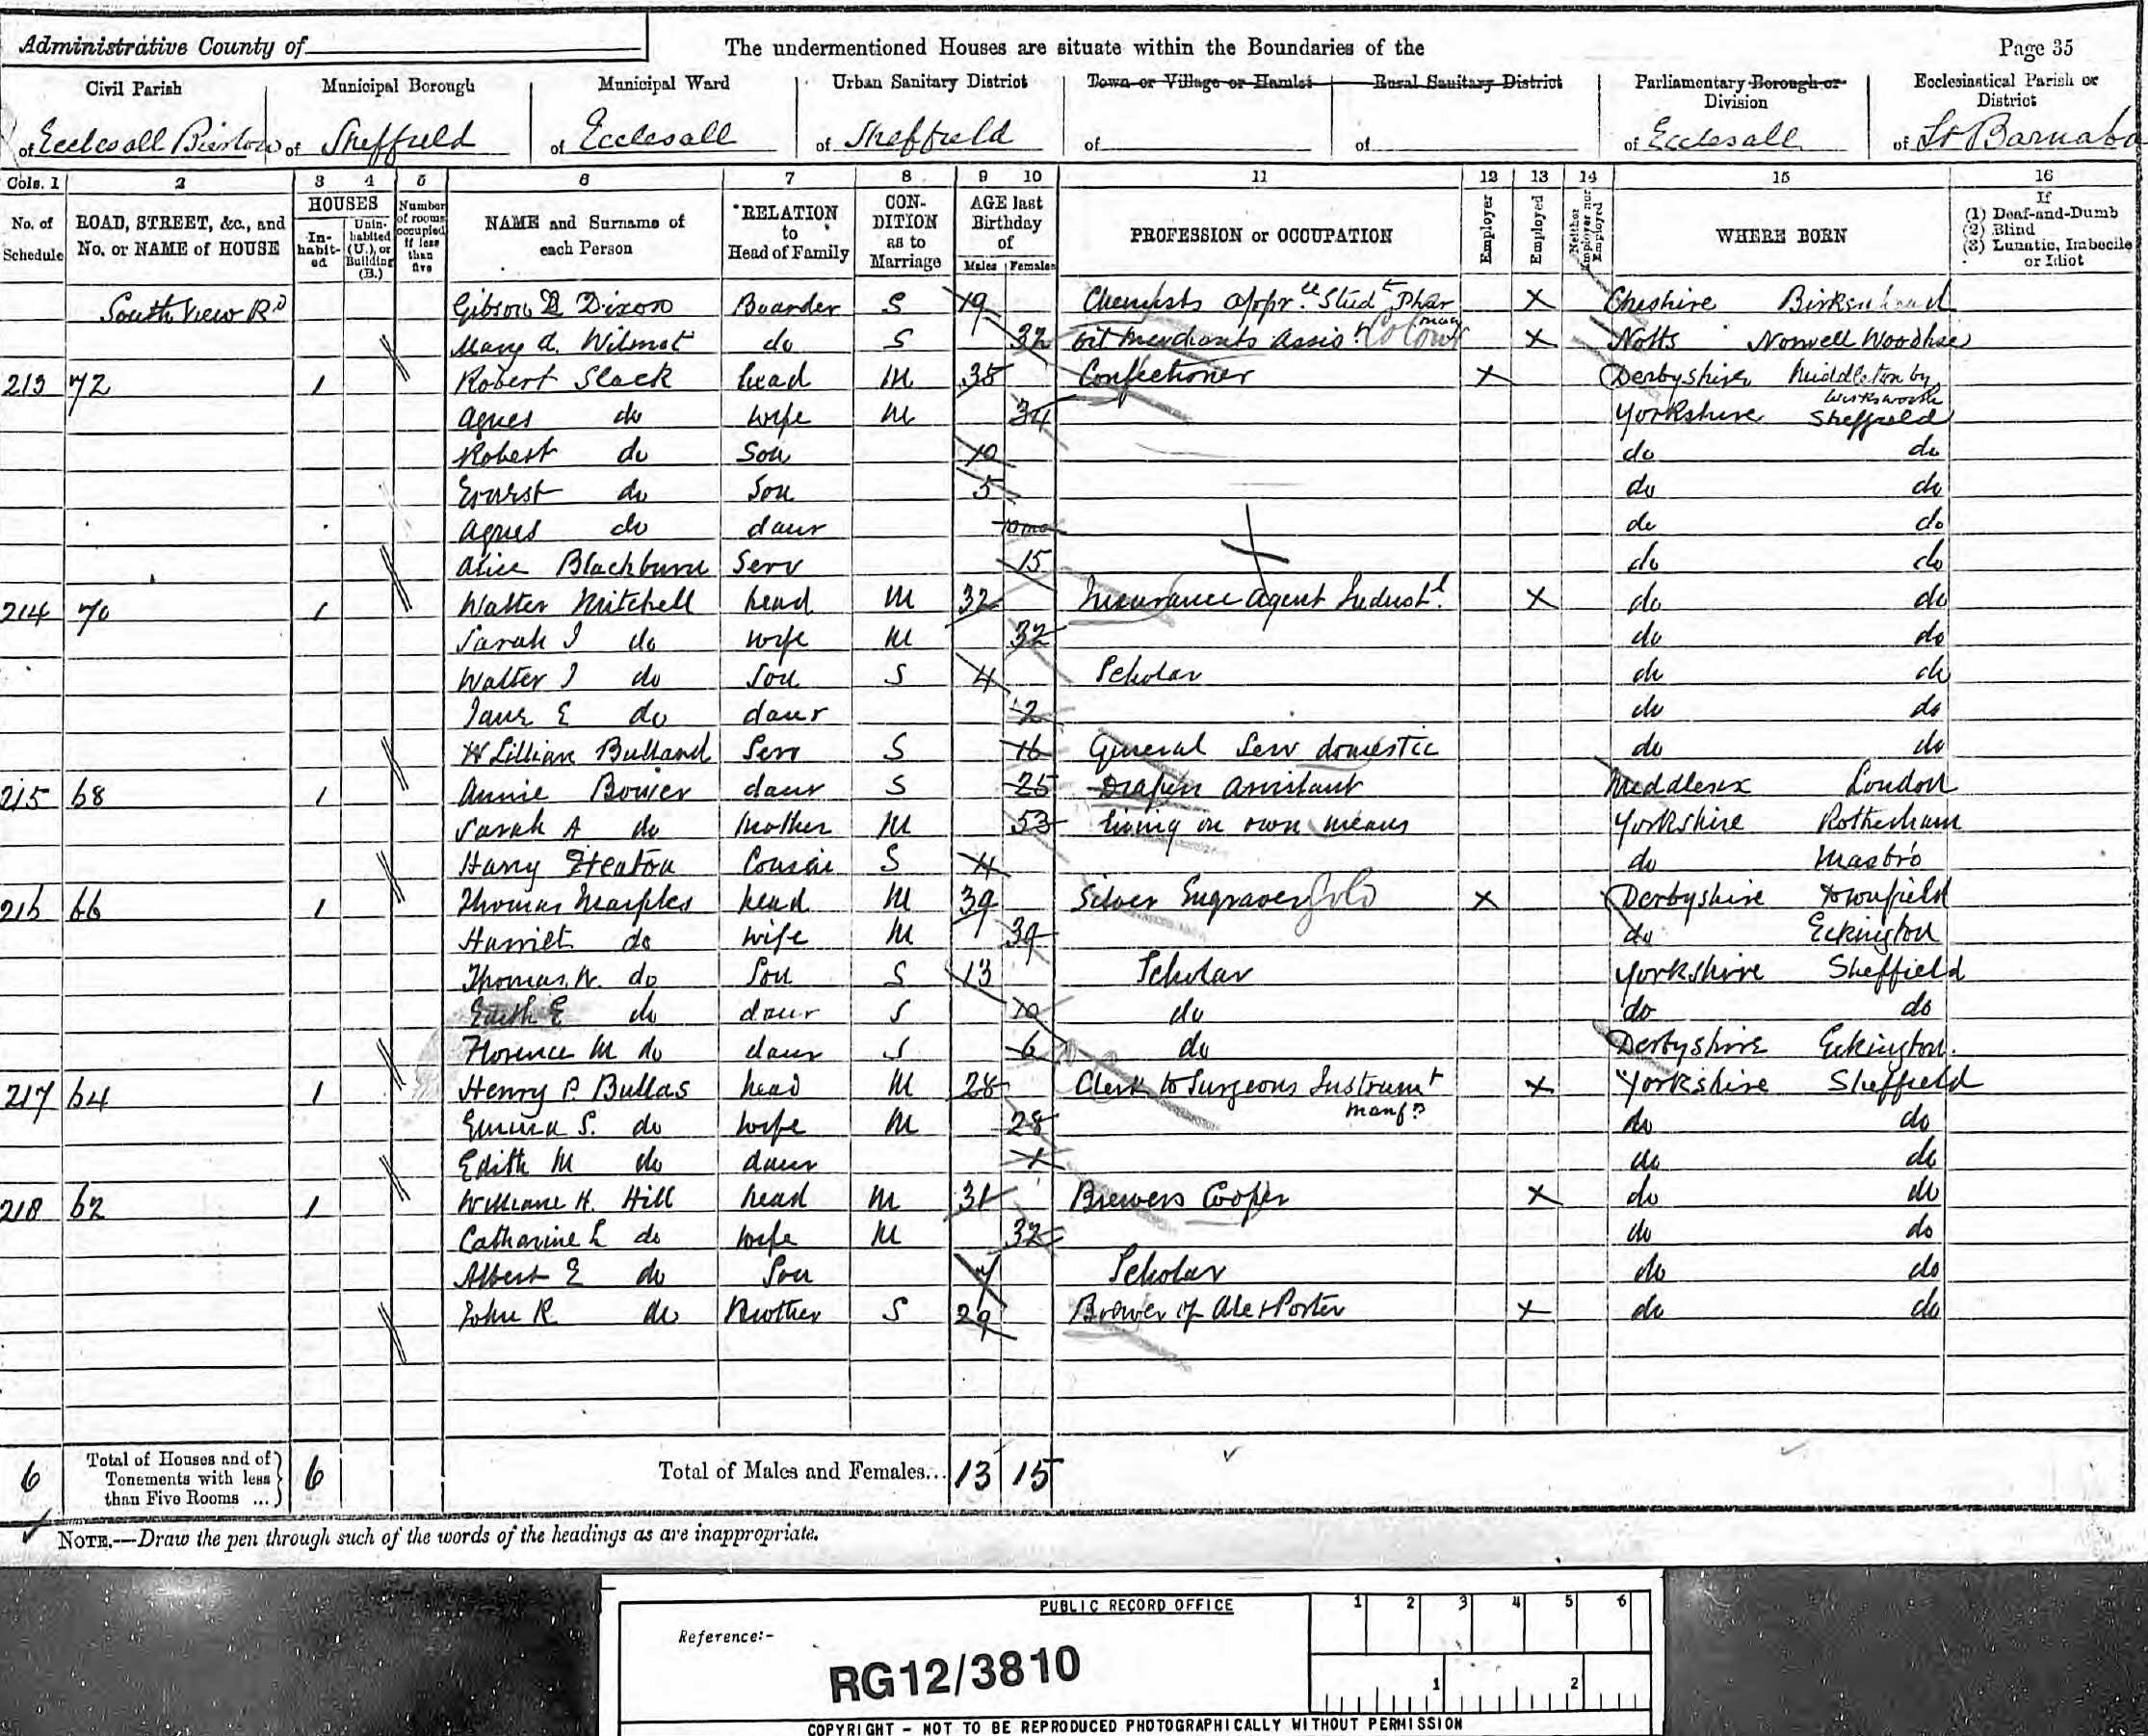 Administrative County of
The undermentioned Houses are situate within the Boundaries of the
Page 35
Civil Parish
Municipal Borough
Municipal Ward
Urban Sanitary District
Town or Village or Hamlet
Rural Sanitary District
Parliamentary Borough or Division
Ecclesiastical Parish or District
of Ecclesall Bierlow of Sheffield of Ecclesall of Sheffield of of of Ecclesall of St Barnabas
Cols. 1 2 3 4 5 6 7 8 9 10 11 12 13 14 15 16
No. of Schedule
ROAD, STREET, &c., and No. or NAME of HOUSE
HOUSES
In-habit-ed
Unin-habited (U.), or Building (B.)
Number of rooms occupied if less than five
NAME and Surname of each Person
RELATION to Head of Family
CON-DITION as to Marriage
AGE last Birthday of
Males Females
PROFESSION or OCCUPATION
Employer
Employed
Neither Employer nor Employed
WHERE BORN
If
(1) Deaf-and-Dumb
(2) Blind
(3) Lunatic, Imbecile or Idiot
South View Rd Gibson Dixon Boarder S 19 Chemists appr.ce Studt Phar macy X Cheshire Birkenhead
Mary A. Wilmot do S 32 Oil Merchants Assis X Notts Norwell Woodhse
213 72 1 Robert Slack head M 35 Confectioner X Derbyshire Middleton by Wirksworth
Agnes do wife M 34 Yorkshire Sheffield
Robert do Son 10 do do
Ernest do Son 5 do do
Agnes do daur 10 mo do do
Alice Blackburn Serv 15 do do
214 70 1 Walter Mitchell head M 32 Insurance Agent Industl. X do do
Sarah J do wife M 32 do do
Walter J do Son S 4 Scholar do do
Jane E do daur 2 do do
Lillian Bulland Serv S 16 General Serv domestic do do
215 68 1 Annie Bower daur S 25 Drapers Assistant Middlesex London
Sarah A do Mother M 53 Living on own means Yorkshire Rotherham
Harry Heaton Cousin S 4 do Masbro
216 66 1 Thomas Marples head M 39 Silver Engraver X Derbyshire Dronfield
Harriet do wife M 39 do Eckington
Thomas W. do Son S 13 Scholar Yorkshire Sheffield
Edith E do daur S 10 do do do
Florence M do daur S 6 do Derbyshire Eckington.
217 64 1 Henry P. Bullas head M 28 Clerk to Surgeons Instrumt Manfr X Yorkshire Sheffield
Emma S. do wife M 28 do do
Edith M do daur 1 do do
218 62 1 William H. Hill head M 31 Brewers Cooper X do do
Catharine L do wife M 32 do do
Albert E do Son 7 Scholar do do
John R do Brother S 29 Brewer of Ale & Porter X do do
6 Total of Houses and of Tenements with less than Five Rooms ... 6 Total of Males and Females... 13 15
NOTE.—Draw the pen through such of the words of the headings as are inappropriate.
PUBLIC RECORD OFFICE
1 2 3 4 5 6
Reference:-
RG12/3810
1 2
COPYRIGHT - NOT TO BE REPRODUCED PHOTOGRAPHICALLY WITHOUT PERMISSION